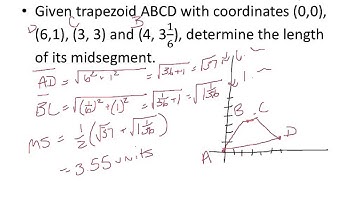 • Given trapezoid ABCD with coordinates (0,0),
D C B
(6,1), (3, 3) and (4, 3 1/6), determine the length
of its midsegment.
AD = √6² + 1² = √36+1 = √37
BC = √(1/6)² + (1)² = √1/36 + 1 = √1 1/36
MS = 1/2 (√37 + √1 1/36)
≈ 3.55 units
B C
D
A